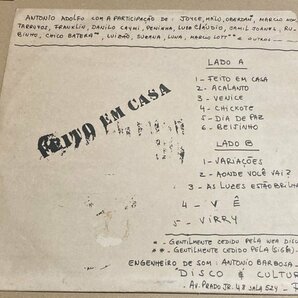 ANTONIO ADOLFO COM A PARTICIPAÇÃO DE: JOYCE, MALU, OBERDAN, MARCIO MON
TARROYOS, FRANKLIN, DANILO CAYMI, PENINHA, LUIZ CLÁUDIO, JAMIL JOANES, RU-
BINHO, CHICO BATERA**, LUIZÃO, LUNA, MARCIO LOTT** & OUTROS
FEITO EM CASA
LADO A
1- FEITO EM CASA
2- ACALANTO
3- VENICE
4- CHICKOTE
5- DIA DE PAZ
6- BEIJINHO
LADO B
1- VARIAÇÕES
2- AONDE VOCÊ VAI?
3- AS LUZES ESTÃO BRILHA
4- VÊ
5- VIRRY
*- GENTILMENTE CEDIDO PELA WEA DISCO
**- GENTILMENTE CEDIDO PELA
ENGENHEIRO DE SOM: ANTONIO BARBOSA
DISCO & CULTUR
AV. PRADO JR. 48 SALA 524